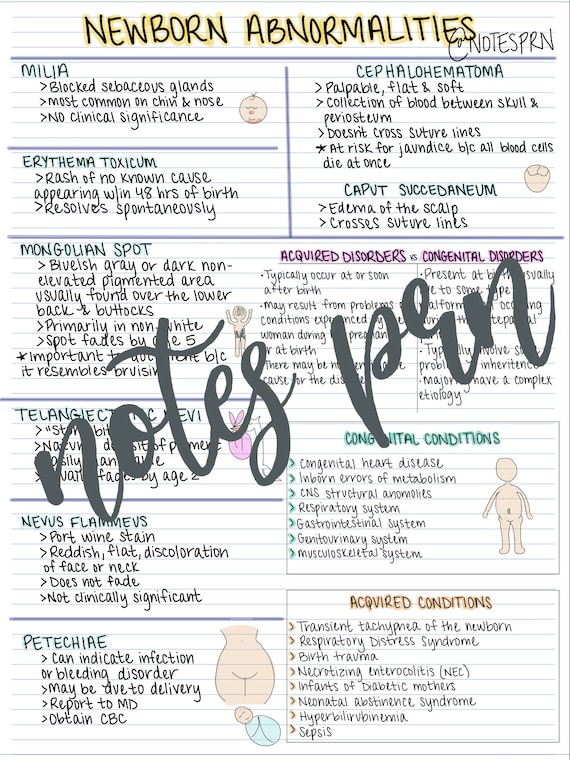 NEWBORN ABNORMALITIES
@NOTESPRN
MILIA
>Blocked sebaceous glands
>most common on chin & nose
>No clinical significance
ERYTHEMA TOXICUM
>Rash of no known cause
appearing w/in 48 hrs of birth
>Resolves spontaneously
CEPHALOHEMATOMA
>Palpable, flat & soft
>Collection of blood between skull &
periosteum
>Doesn't cross suture lines
*At risk for jaundice b/c all blood cells
die at once
CAPUT SUCCEDANEUM
>Edema of the scalp
>Crosses suture lines
MONGOLIAN SPOT
>Blueish gray or dark non-
elevated pigmented area
usually found over the lower
back & buttocks
>Primarily in non-white
>Spot fades by age 5
*important to document b/c
it resembles bruising
ACQUIRED DISORDERS vs CONGENITAL DISORDERS
·Typically occur at or soon
after birth
·May result from problems or
conditions experienced by the
woman during pregnancy
or at birth
There may be no
cause for the disorder
·Present at birth usually
due to some type
malformation occuring
during the
·Typically involve some
problem inheritence
·majority have a complex
etiology
notes prn
TELANGIECTATIC NEVI
>"Stork bites"
by age 2
NEVUS FLAMMEUS
>Port wine stain
>Reddish, flat, discoloration
of face or neck
>Does not fade
>Not clinically significant
PETECHIAE
>Can indicate infection
or bleeding disorder
>May be due to delivery
>Report to MD
>Obtain CBC
CONGENITAL CONDITIONS
>Congenital heart disease
>Inborn errors of metabolism
>CNS structural anomolies
>Respiratory system
>Gastrointestinal system
>Genitourinary system
>musculoskeletal system
ACQUIRED CONDITIONS
>Transient tachypnea of the newborn
>Respiratory Distress Syndrome
>Birth trauma
>Necrotizing enterocolitis (NEC)
>Infants of Diabetic mothers
>Neonatal abstinence syndrome
>Hyperbilirubinemia
>Sepsis